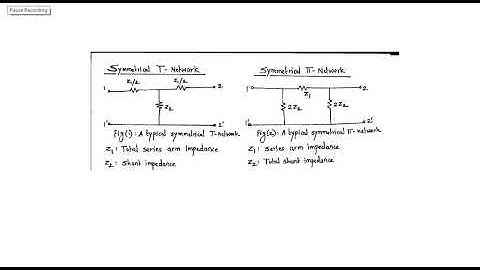 Pause Recording
Symmetrical T-Network
Z₁/2 Z₁/2
1 2
Z₂
1' 2'
Fig(1): A typical symmetrical T-network
Z₁: Total series arm Impedance
Z₂: Shunt impedance
Symmetrical Π-Network
1 2
Z₁
2Z₂ 2Z₂
1' 2'
Fig(2): A typical symmetrical Π-network
Z₁: Series arm Impedance
Z₂: Total shunt impedance